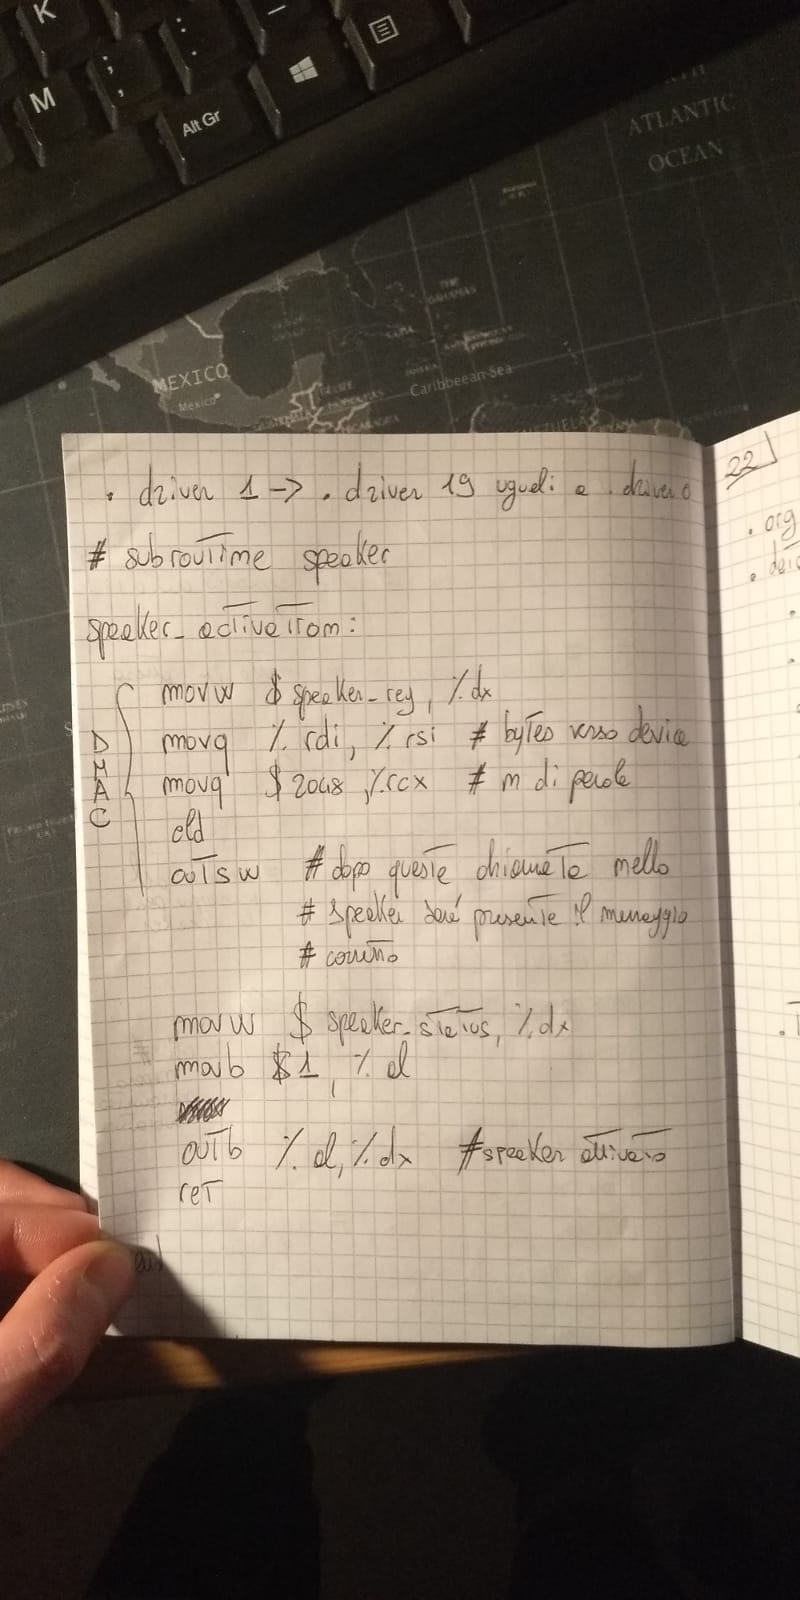 K
M
; ,
: .
-
Alt Gr
ATLANTIC
OCEAN
MEXICO
Mexico
THE
BAHAMAS
CUBA
Caribbeean Sea
22]
. driver 1 -> . driver 19 uguali a . driver 0
. org
# subroutine speaker
speaker_activation:
movw $ speaker_reg, %dx
DMAC
movq %rdi, %rsi # bytes verso device
movq $2048, %rcx # n di parole
cld
outsw # dopo queste chiamate nello
# speaker sarà presente il messaggio
# corretto
movw $ speaker_status, %dx
movb $1, %al
outb %al, %dx # speaker attivato
ret